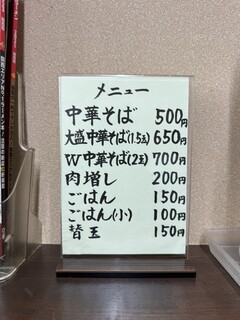 メニュー
中華そば 500円
大盛中華そば(1.5玉) 650円
W中華そば(2玉) 700円
肉増し 200円
ごはん 150円
ごはん(小) 100円
替玉 150円